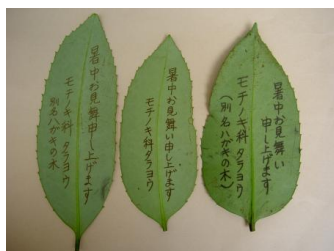 暑中お見舞申し上げます
モチノキ科タラヨウ
別名ハガキの木
暑中お見舞い申し上げます
モチノキ科タラヨウ
暑中お見舞い
申し上げます
モチノキ科タラヨウ
(別名ハガキの木)